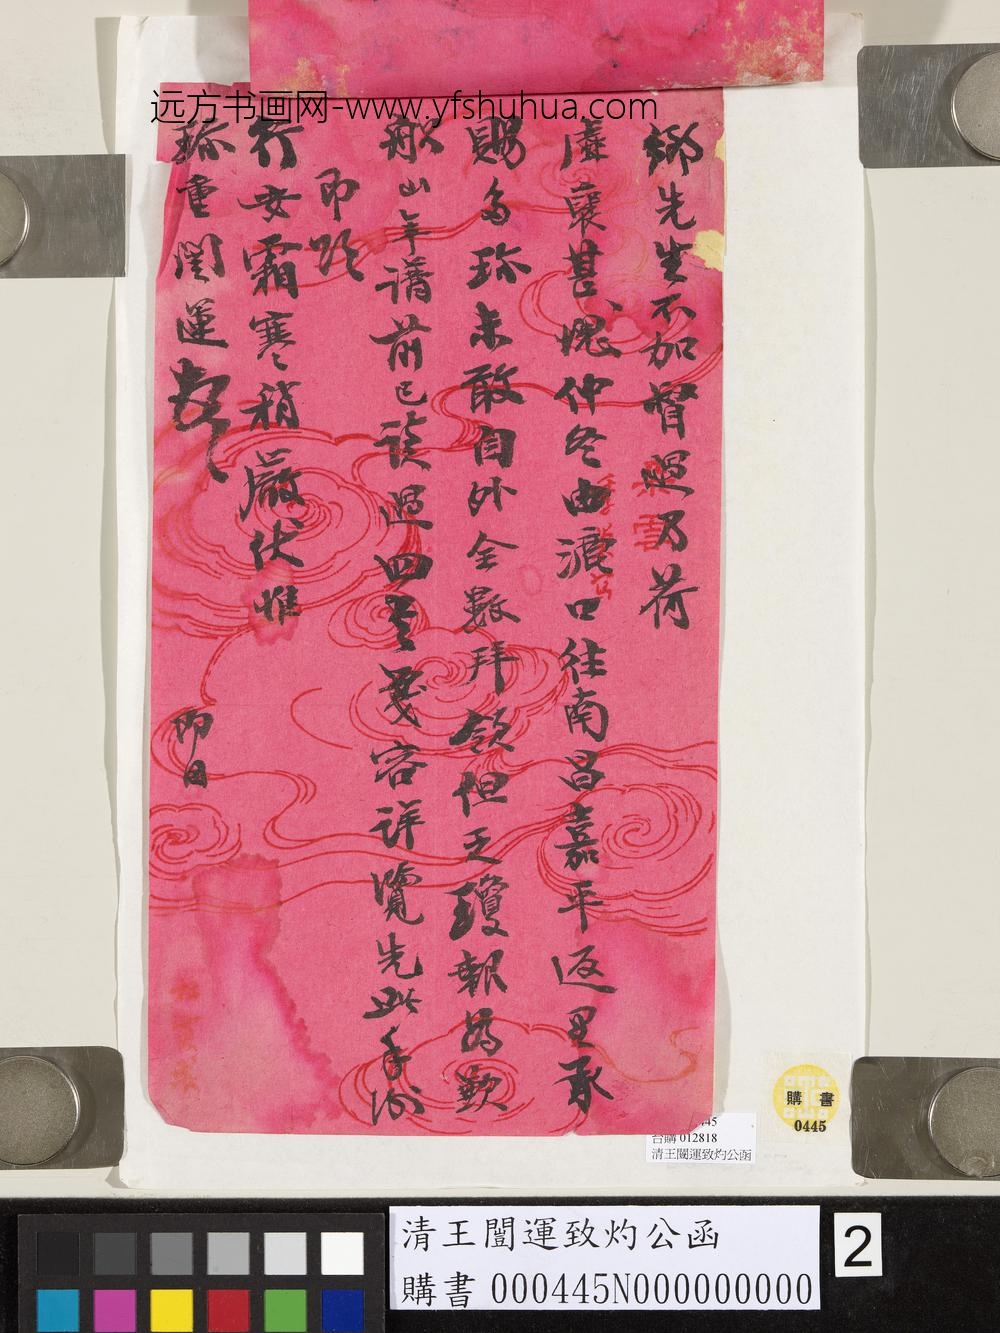 远方书画网-www.yfshuhua.com
鄉先生不加督過乃荷
廑褱甚愧仲冬由滬口往南昌嘉平返里承
賜多珍未敢自外全數拜領但乏瓊報為歉
船山年講前已談過四書義容詳覽先此手謝
即頌
行安霜寒稍嚴伏惟
珎重闓運
即日
采雲
445
台購 012818
清王闓運致灼公函
購書
0445
清王闓運致灼公函
購書 000445N000000000
2